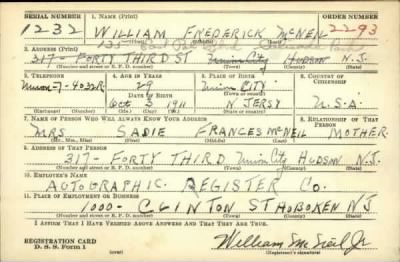 SERIAL NUMBER 1. NAME (Print) ORDER NUMBER
1232 WILLIAM FREDERICK McNEIL 2293
(First) (Middle) (Last)
2. ADDRESS (Print)
317- FORTY THIRD ST Union City HUDSON N.J.
(Number and street or R. F. D. number) (Town) (County) (State)
3. TELEPHONE 4. AGE IN YEARS 5. PLACE OF BIRTH 6. COUNTRY OF CITIZENSHIP
Union-7-4032R 29 Union CITY
DATE OF BIRTH (Town or county)
Oct 3 1911 N JERSY U.S.A.
(Exchange) (Number) (Mo.) (Day) (Yr.) (State or country)
7. NAME OF PERSON WHO WILL ALWAYS KNOW YOUR ADDRESS 8. RELATIONSHIP OF THAT PERSON
MRS SADIE FRANCES McNEIL MOTHER
(Mr., Mrs., Miss) (First) (Middle) (Last)
9. ADDRESS OF THAT PERSON
317- FORTY THIRD Union City HUDSON N.J.
(Number and street or R. F. D. number) (Town) (County) (State)
10. EMPLOYER'S NAME
AUTOGRAPHIC REGISTER CO.
11. PLACE OF EMPLOYMENT OR BUSINESS
1000- CLINTON ST HOBOKEN NJ
(Number and street or R. F. D. number) (Town) (County) (State)
I AFFIRM THAT I HAVE VERIFIED ABOVE ANSWERS AND THAT THEY ARE TRUE.
REGISTRATION CARD
D. S. S. Form 1 (over) William McNeil Jr
(Registrant's signature)